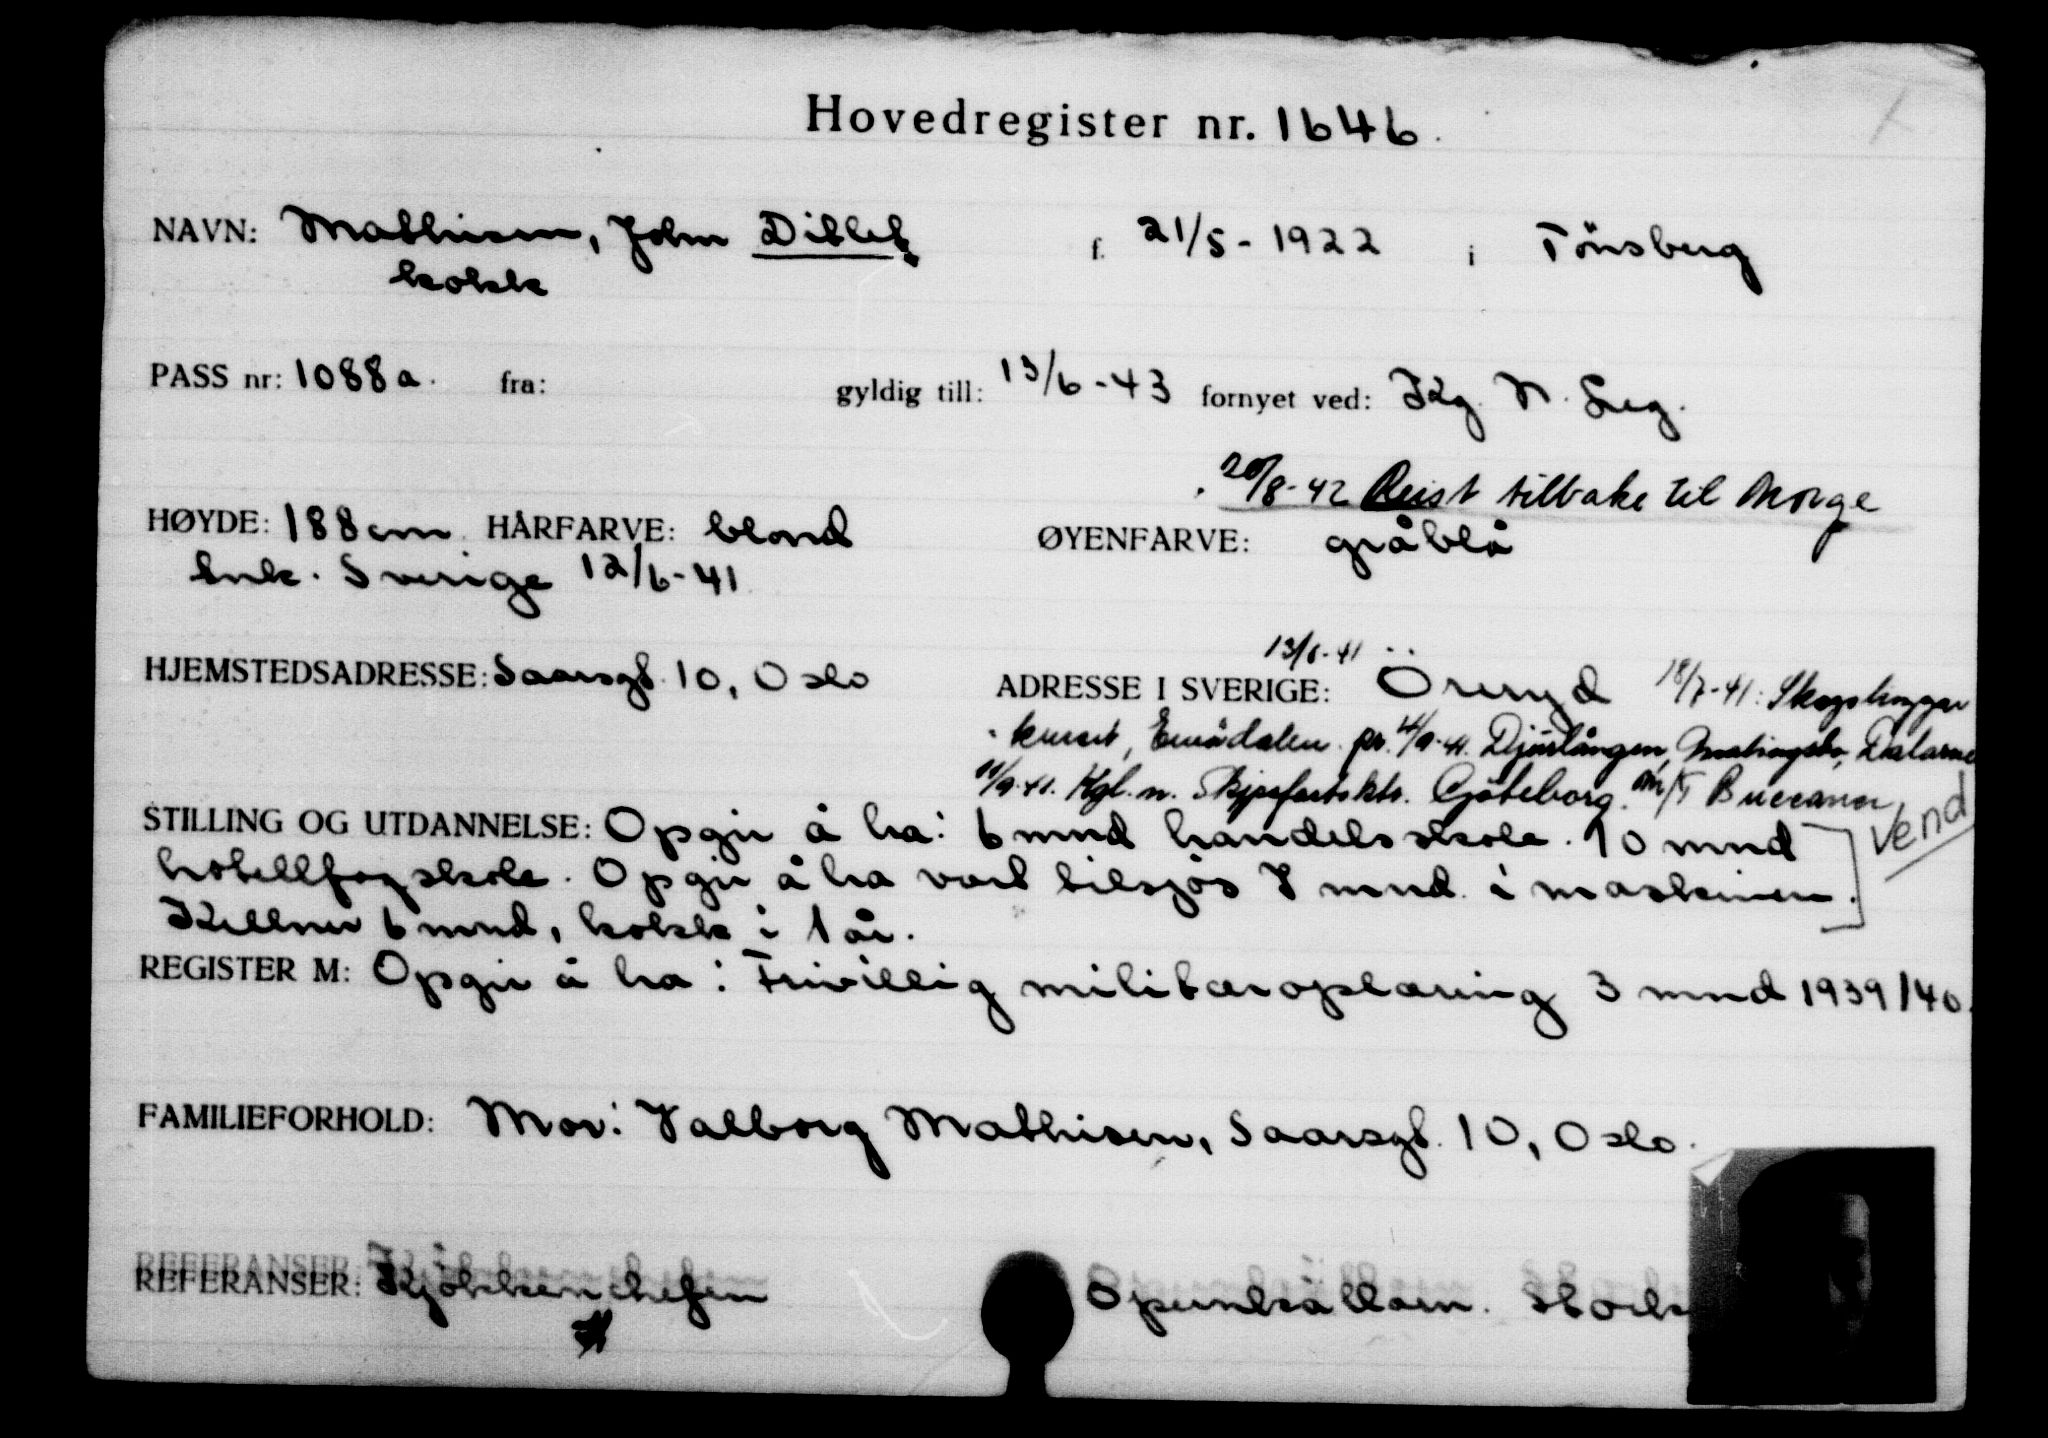 Hovedregister nr. 1646.
NAVN: Mathisen, John Ditlef f. 21/5-1922 i Tönsberg
kokk
PASS nr: 1088a. fra: gyldig till: 13/6-43 fornyet ved: Kg. N. Leg.
20/8-42 Reist tilbake til Norge
HØYDE: 188cm HÅRFARVE: blond ØYENFARVE: gråblå
Ink. Sverige 12/6-41
13/6-41
HJEMSTEDSADRESSE: Saarsgt. 10, Oslo ADRESSE I SVERIGE: Öreryd 18/7-41: Skogshugger
kurset, Emådalen. pr. 4/9-41. Djürlången, Dalarne
11/9-41. Kgl. n. Skipsfartsktr. Göteborg. m/T Buccaneer
Vend
STILLING OG UTDANNELSE: Opgir å ha: 6 mnd handelsskole. 10 mnd
hotellfagskole. Opgir å ha vært tilsjös 7 mnd. i maskinen.
Kellner 6 mnd, kokk i 1 år.
REGISTER M: Opgir å ha: Frivillig militæroplæring 3 mnd 1939/40.
FAMILIEFORHOLD: Mor: Valborg Mathisen, Saarsgt. 10, Oslo.
REFERANSER: Kjökkenchefen Operakällaren. Stock